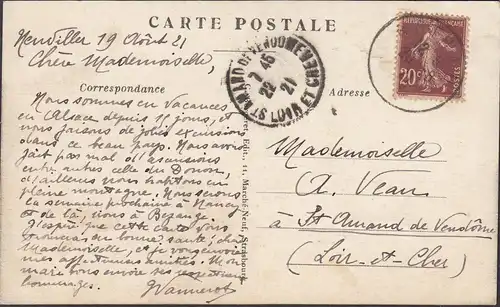 CARTE POSTALE
Neuviller 19 Août 21
Chère Mademoiselle,
Correspondance
Adresse
Nous sommes en vacances
en Alsace depuis 15 jours, et
nous faisons de jolies excursions
dans ce beau pays. Nous avons
fait pas mal d'ascensions
entre autres celle du Donon,
d'ailleurs nous habitons en
pleine montagne. Nous serons
la semaine prochaine à Nancy
et de là, nous à Bezange
J'espère que cette carte vous
trouvera en bonne santé, chère
Mademoiselle, et je vous envoie
mes affectueuses amitiés. Mon
mari vous envoie ses respectueux
hommages.
Vannerot
Édit., 11, Marché-Neuf, Strasbourg
ST AMAND DE VENDOME
LOIR ET CHER
7 45
22
21
REPUBLIQUE FRANCAISE
20
POSTES
Mademoiselle
A. Veau
à St Amand de Vendôme
(Loir-et-Cher)